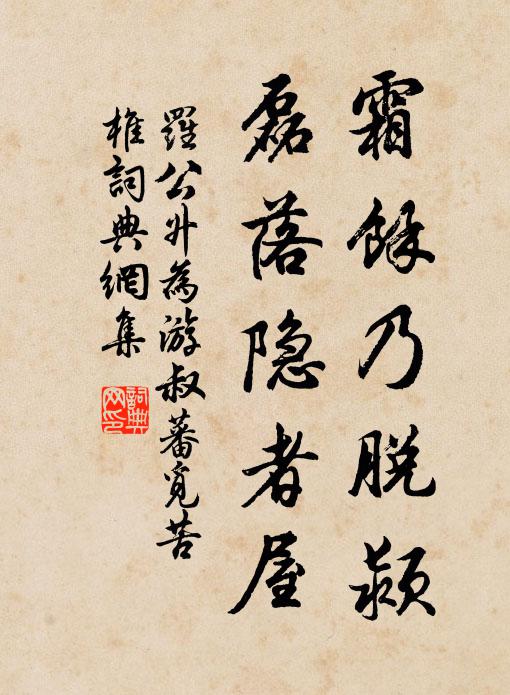 霜餘乃脱颖
磊落隐者屋
羅公升為游叔蕃覓苦
榷詞典網集
詞典
网印